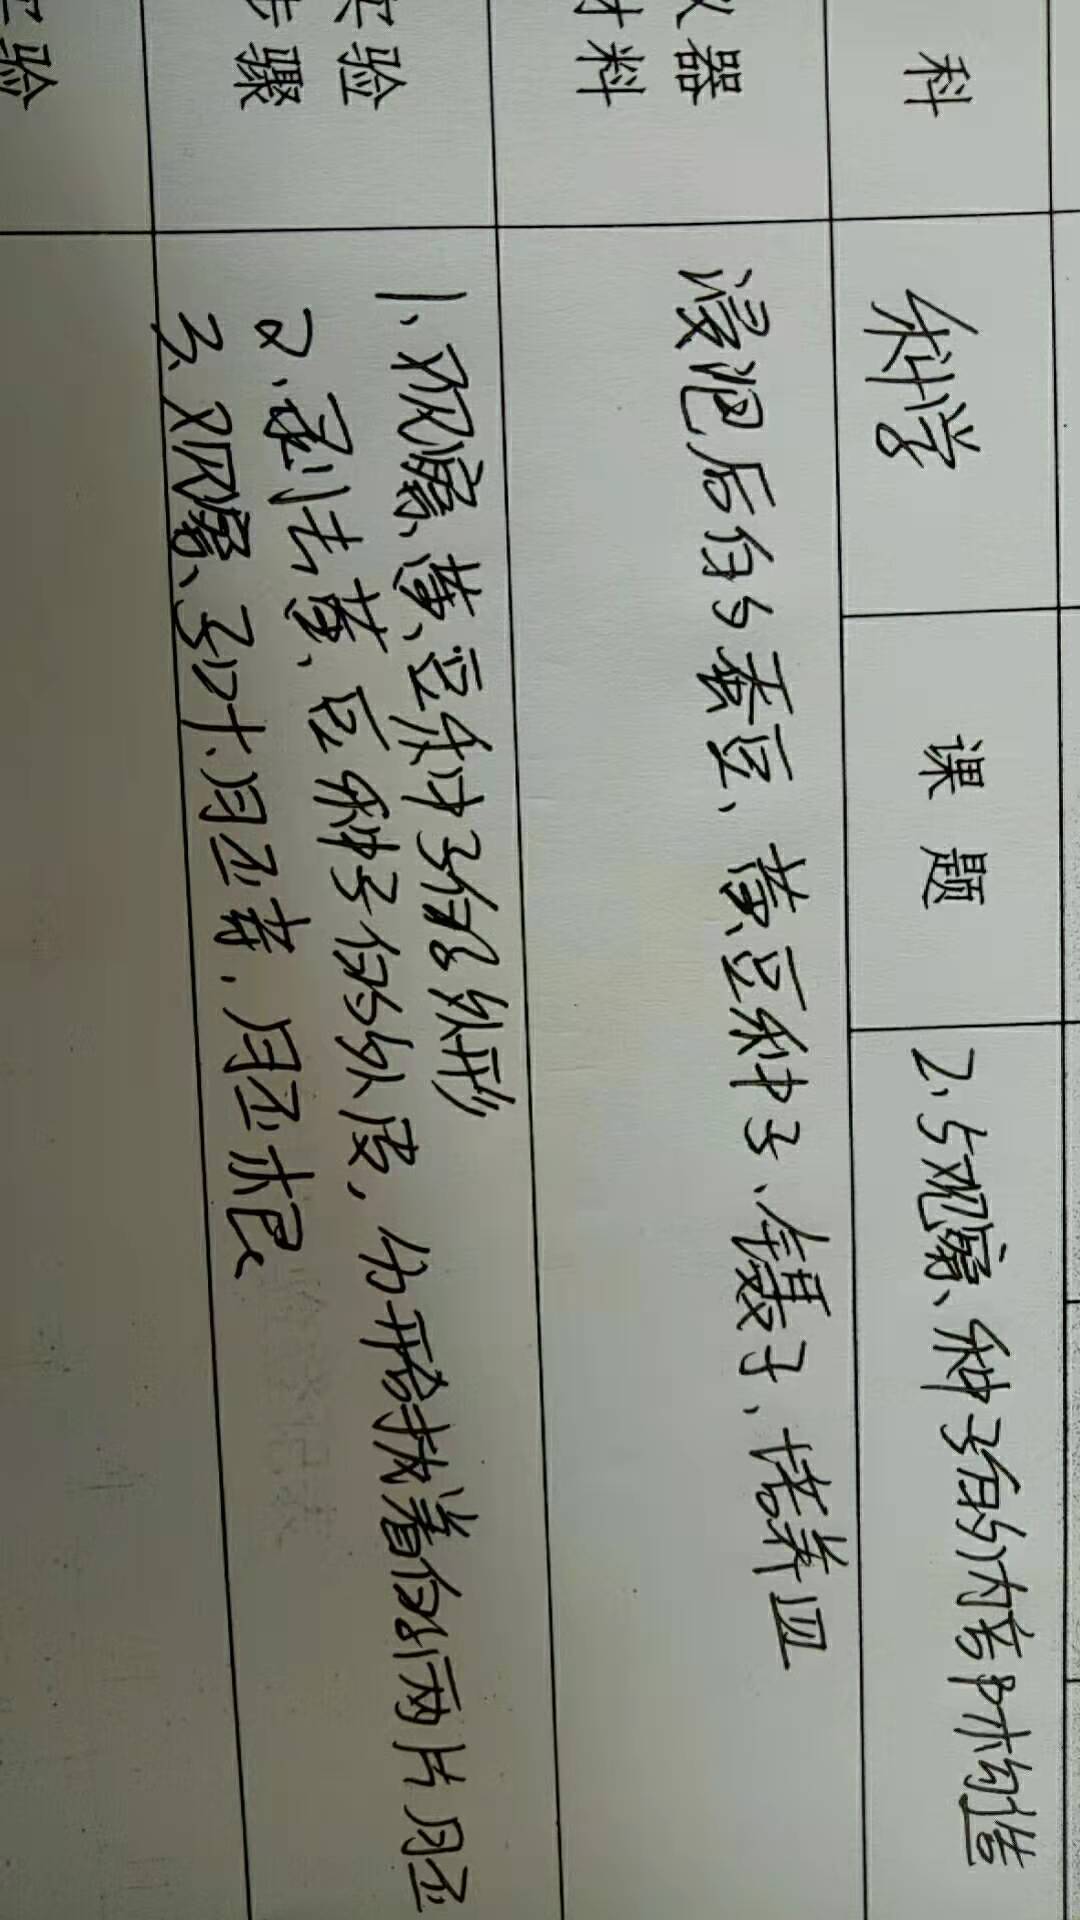 科 科学 课题 2.5观察种子的内部构造
仪器 浸泡后的蚕豆、黄豆种子、镊子、培养皿
材料
实验 1、观察黄豆种子的外形
步骤 2、剥去黄豆种子的外皮，分开合拢着的两片胚
3、观察子叶、胚芽，胚根
实验